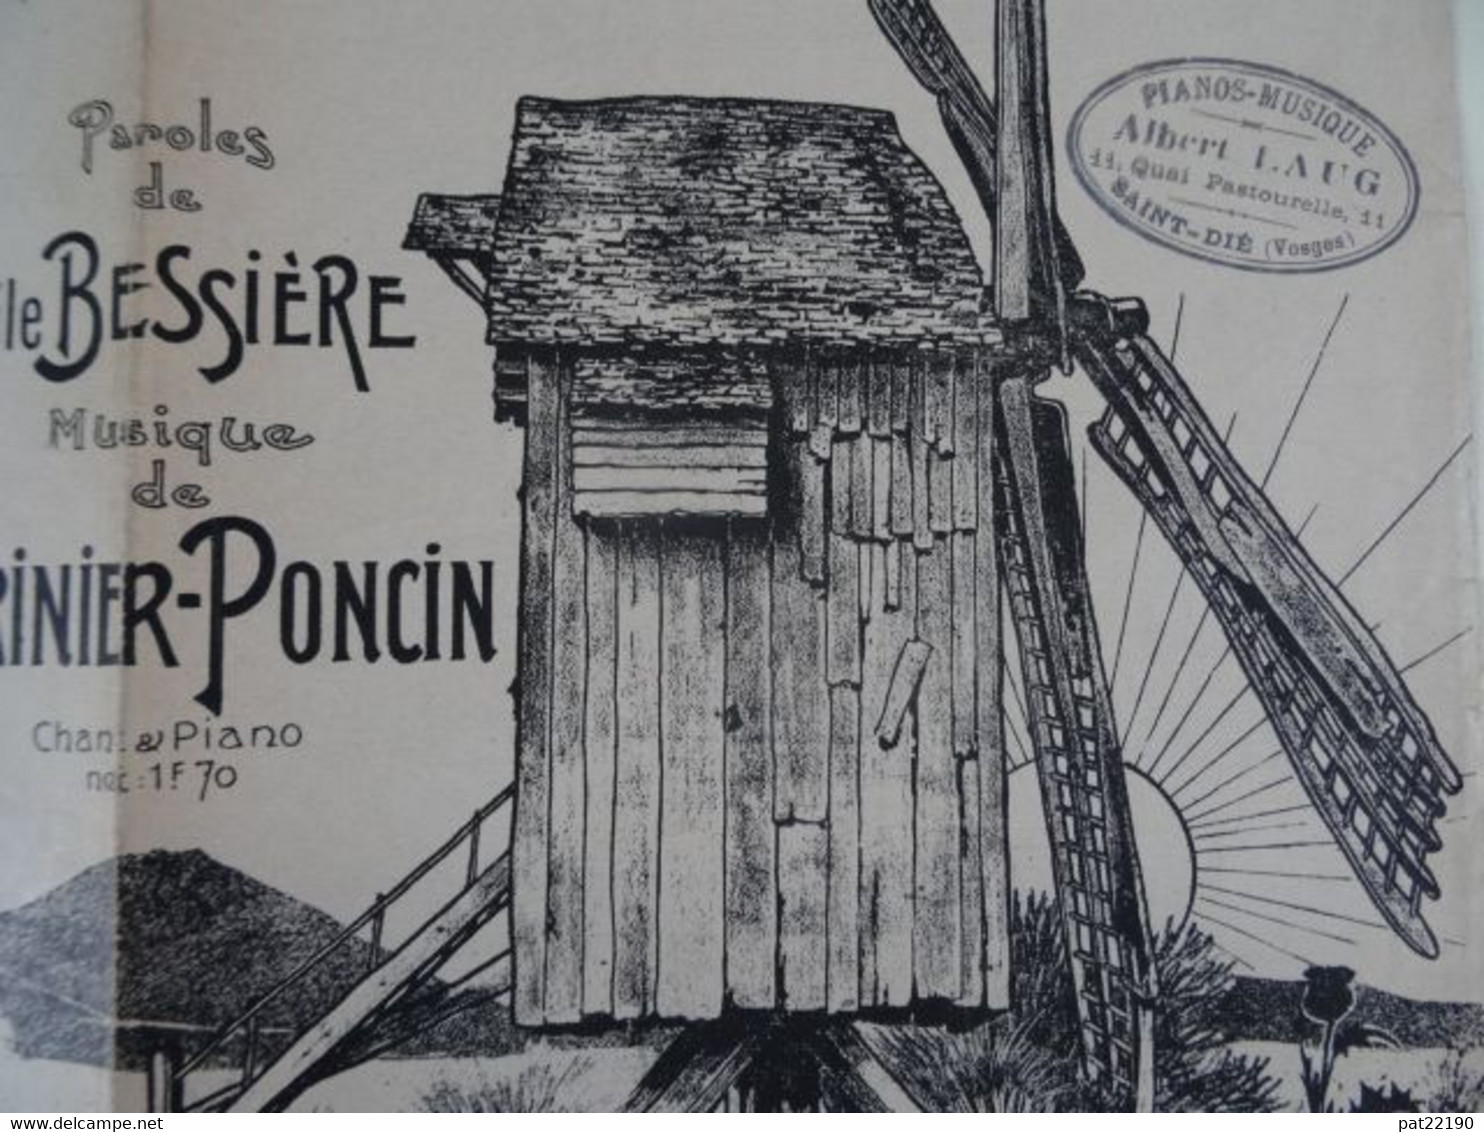 Paroles
de
le BESSIÈRE
Musique
de
RINIER-PONCIN
Chant & Piano
net : 1F 70
PIANOS-MUSIQUE
Albert LAUG
11, Quai Pastourelle, 11
SAINT-DIÉ (Vosges)
delcampe.net
pat22190